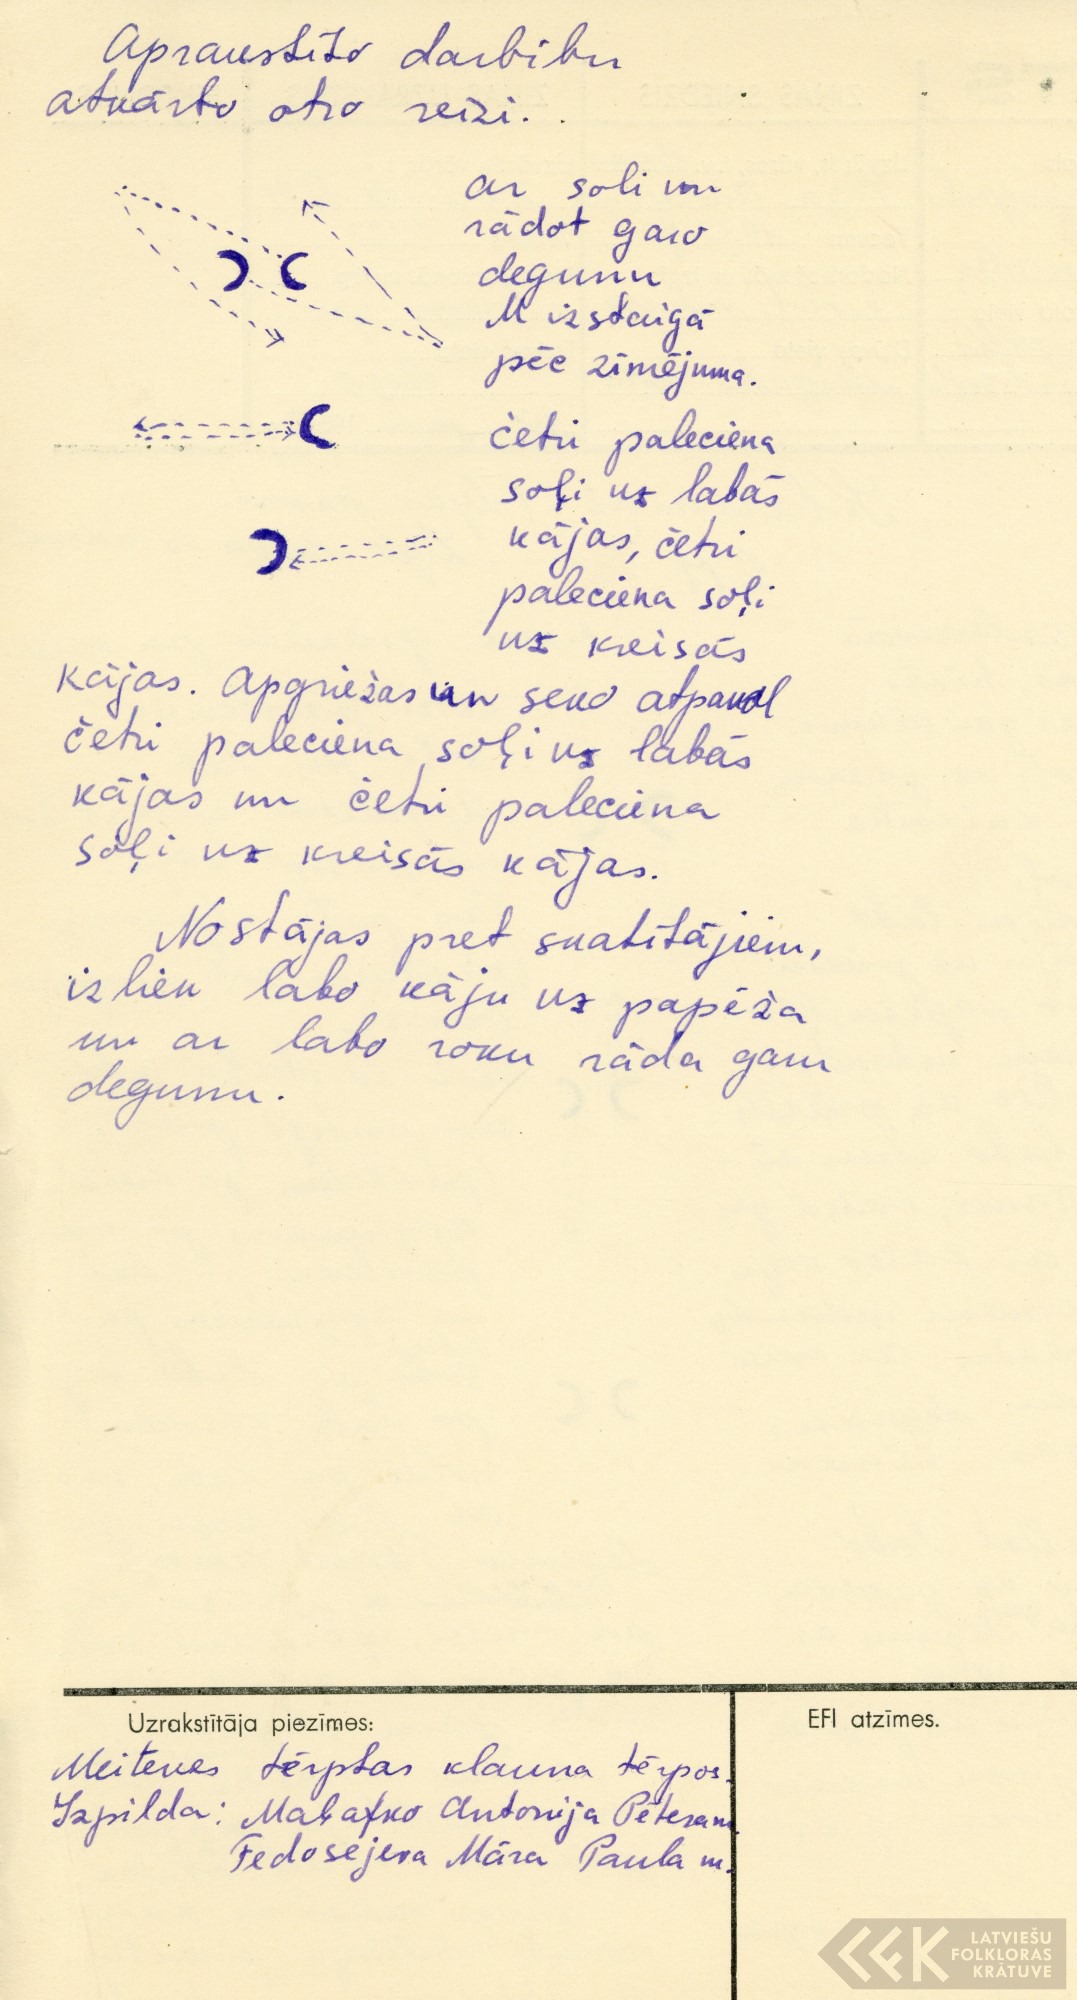 Aprakstīto darbību
atkārto otro reizi.
ar soli un
rādot garo
degunu
M izstaigā
pēc zīmējuma.
četri paleciena
soļi uz labās
kājas, četri
paleciena soļi
uz kreisās
kājas. Apgriežas un seko atpakaļ
četri paleciena soļi uz labās
kājas un četri paleciena
soļi uz kreisās kājas.
Nostājas pret skatītājiem,
izliek labo kāju uz papēža
un ar labo roku rāda garu
degunu.
Uzrakstītāja piezīmes:
EFI atzīmes.
Meitenes tērptas klauna tērpos.
Izpilda: Antonija Pētera m.
Fedosejeva Māra Paula m.
LATVIEŠU
FOLKLORAS
KRĀTUVE